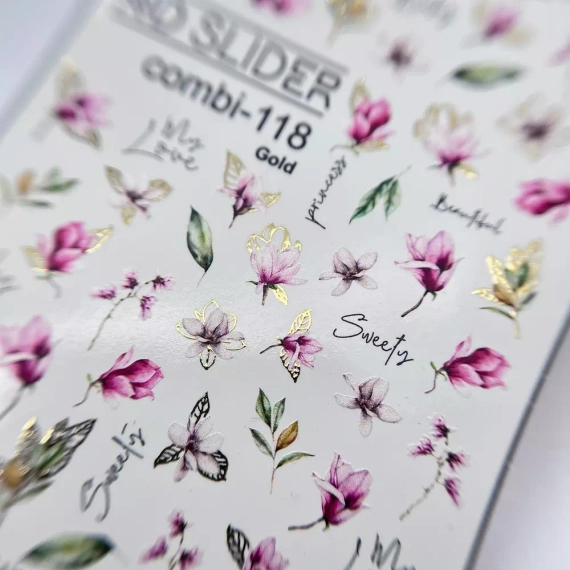 SLIDER
combi-118
Gold
My
Love
princess
Beautiful
Sweety
Sweety
My